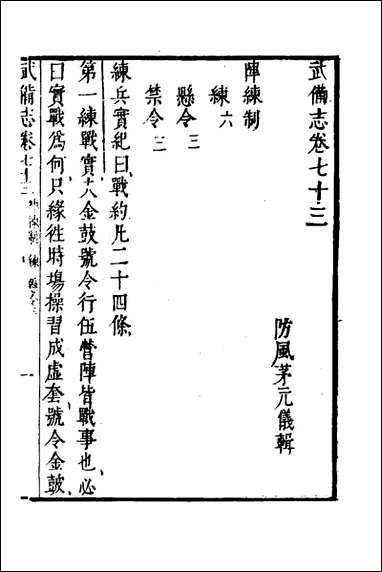 武備志卷七十三
防風茅元儀輯
陣練制
練六
懸令三
禁令三
練兵實紀曰戰約凡二十四條
第一練戰實夫金鼓號令行伍營陣皆戰事也必
曰實戰爲何只緣徃時塲操習成虛套號令金鼓
武備志卷七十三